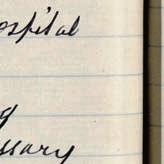 ospital
g
ssary